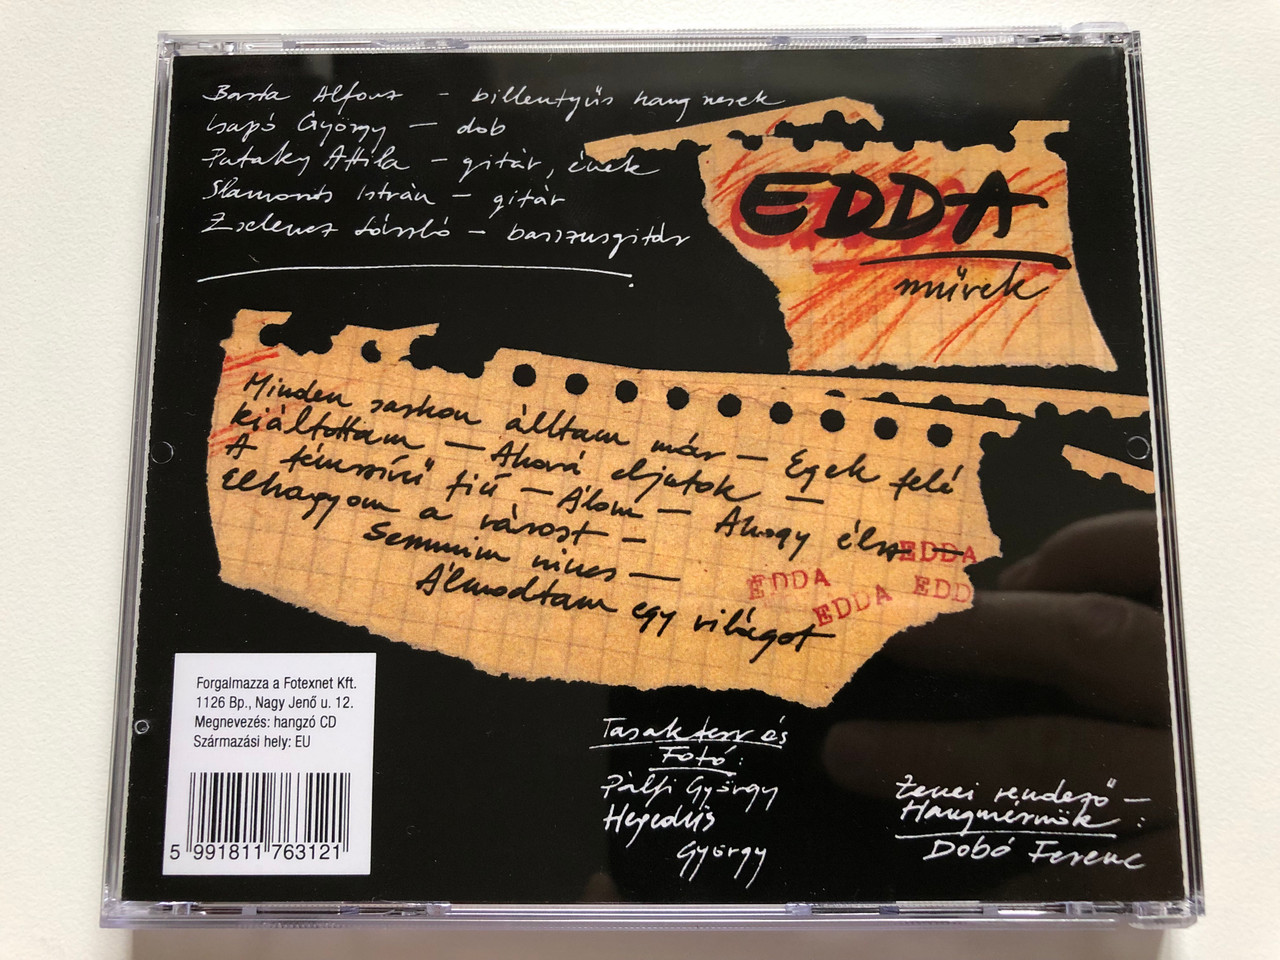 Barta Alfonz - billentyűs hangszerek
Csapó György — dob
Pataky Attila — gitár, ének
Slamovits István — gitár
Zselencz László — basszusgitár
EDDA
művek
Minden sarkon álltam már — Egek felé
kiáltottam — Ahová eljutok —
A fémszívű fiú — Álom — Ahogy élsz —
Elhagyom a várost —
Semmim nincs —
Álmodtam egy világot
EDDA
EDDA
EDDA
EDD
Forgalmazza a Fotexnet Kft.
1126 Bp., Nagy Jenő u. 12.
Megnevezés: hangzó CD
Származási hely: EU
5 991811 763121
Tasakterv és
Fotó:
Pálfi György
Hegedűs
György
Zenei rendező —
Hangmérnök:
Dobó Ferenc